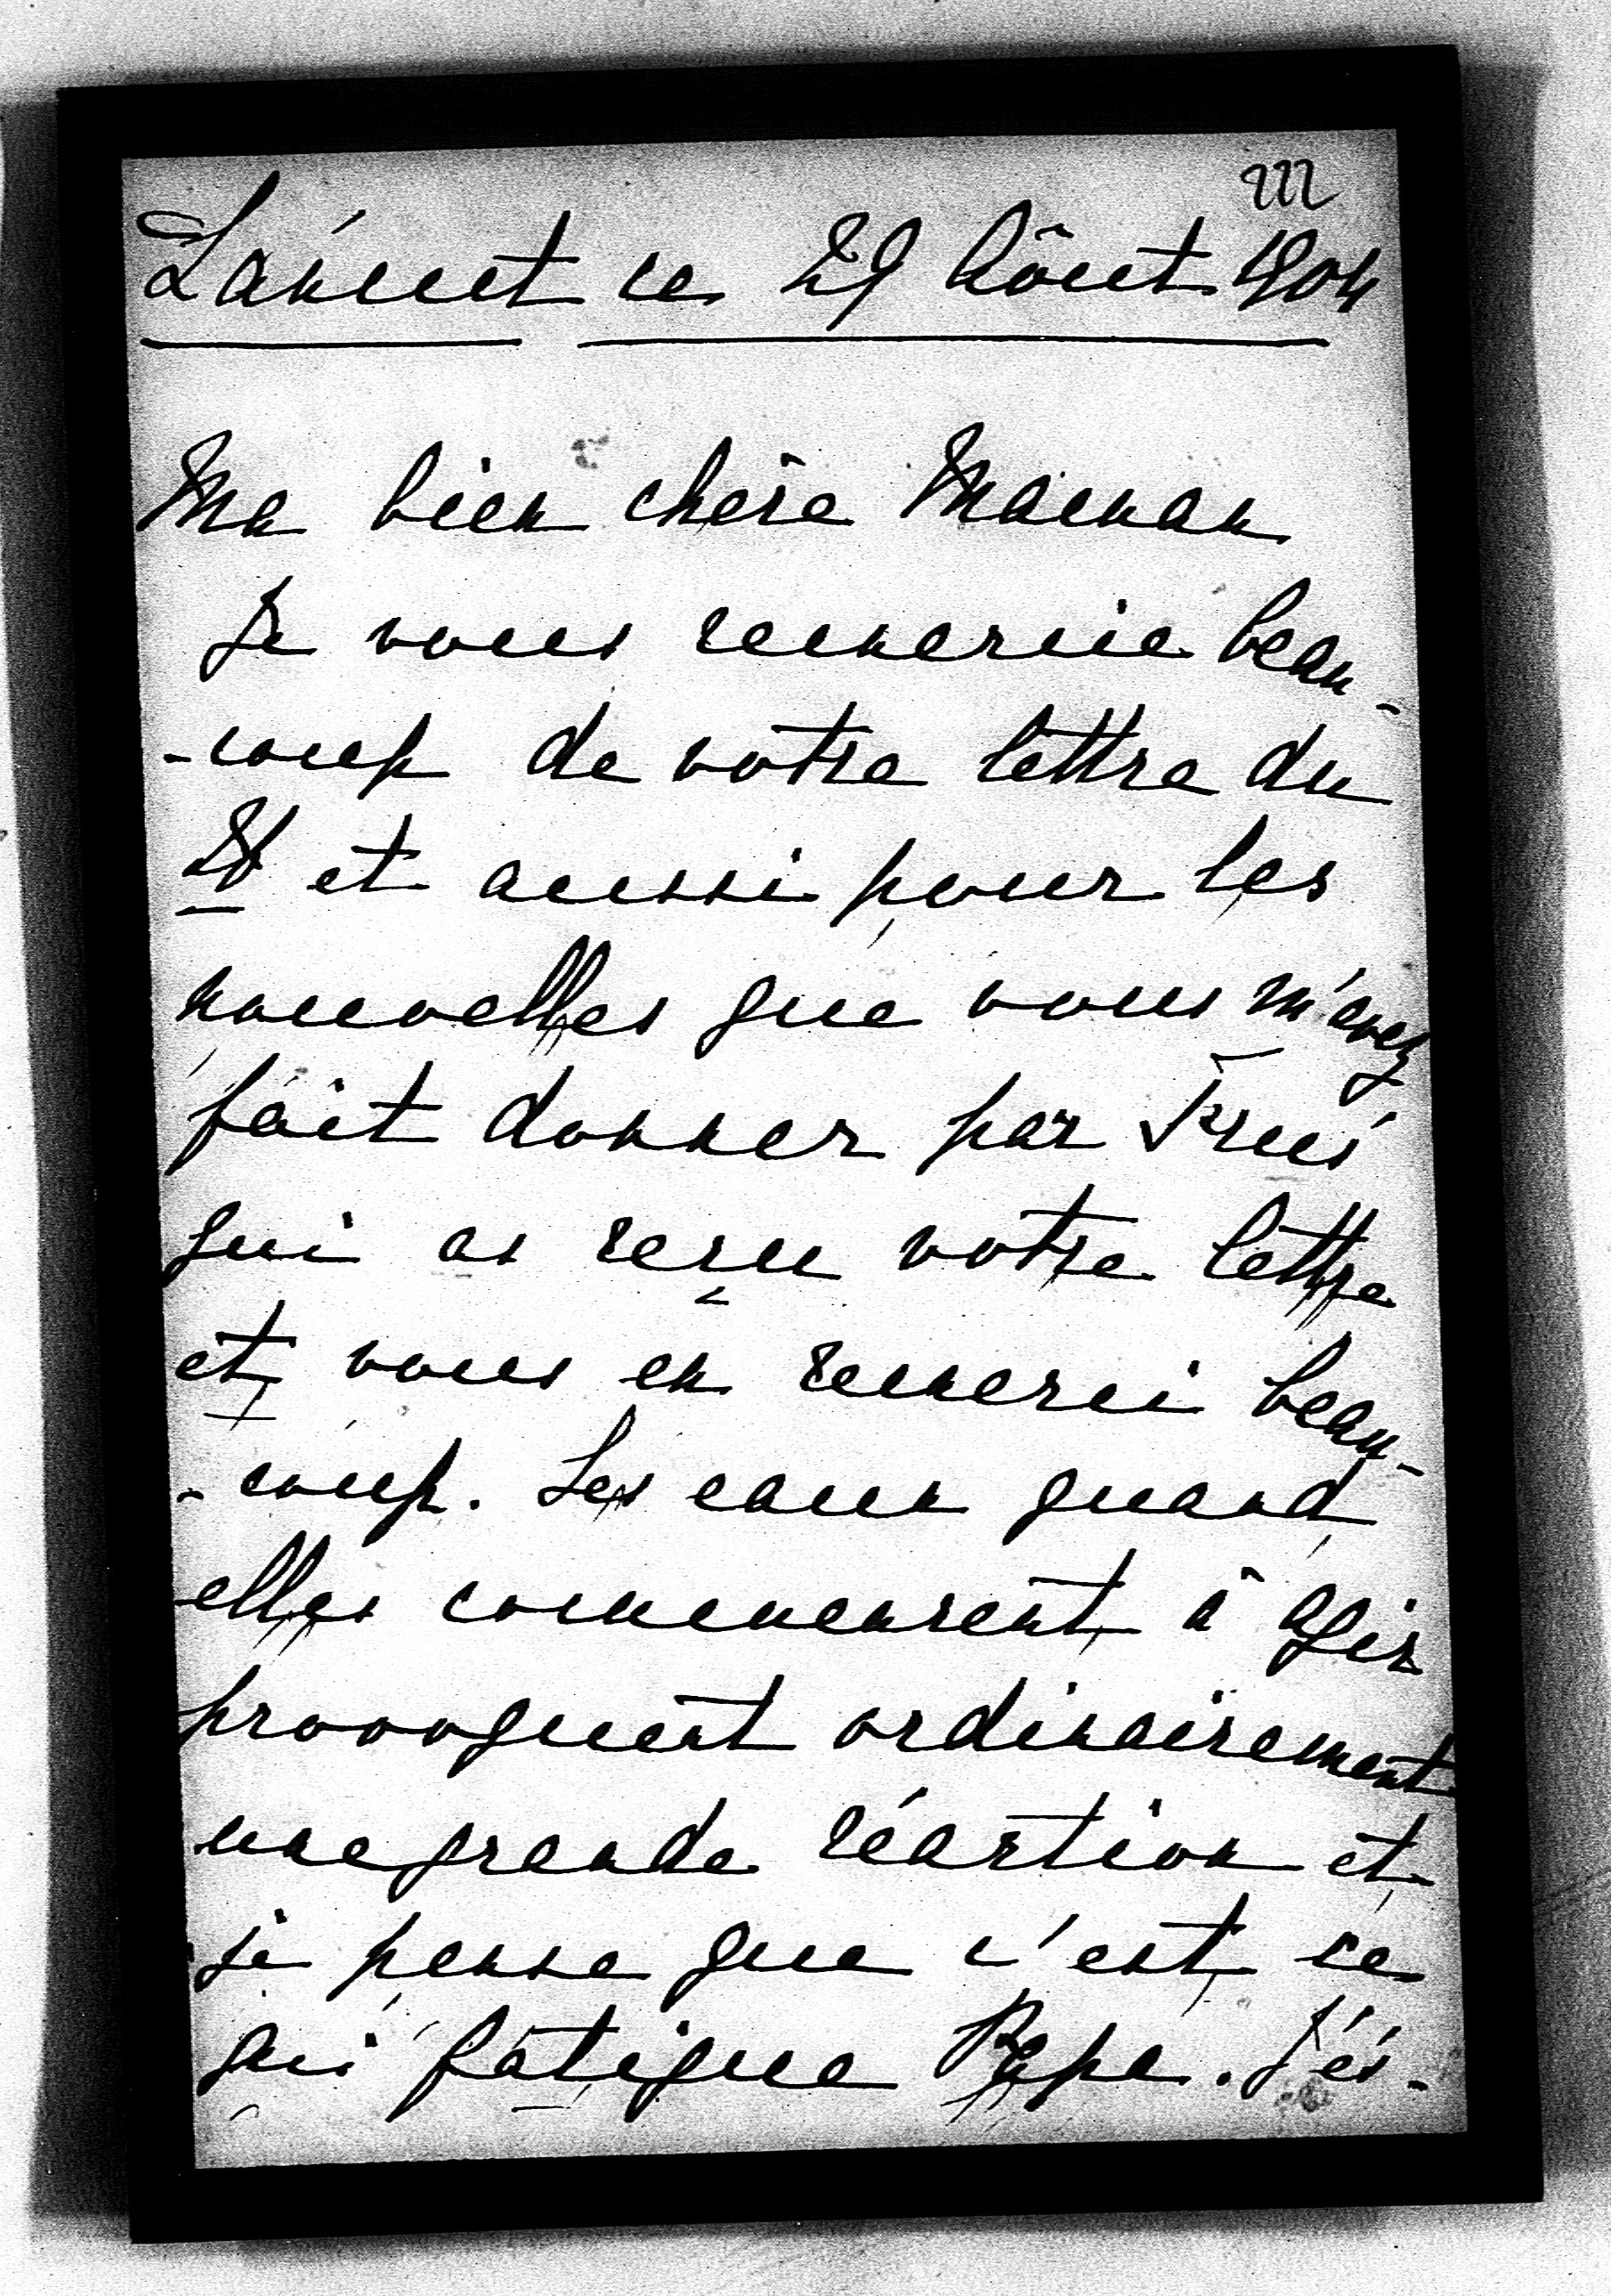 222
Láncut ce 29 Aôut 1904
Ma bien chère Maman
Je vous remercie beau-
-coup de votre lettre du
et aussi pour les
nouvelles que vous m'avez
fait donner par
qui as reçu votre lettre
et vous en remerci beau-
-coup. Les eaux quand
elles commencent à agir
provoquent ordinairement
une grande réaction et
je pense que c'est ce
qui fatigue Papa. J'és-